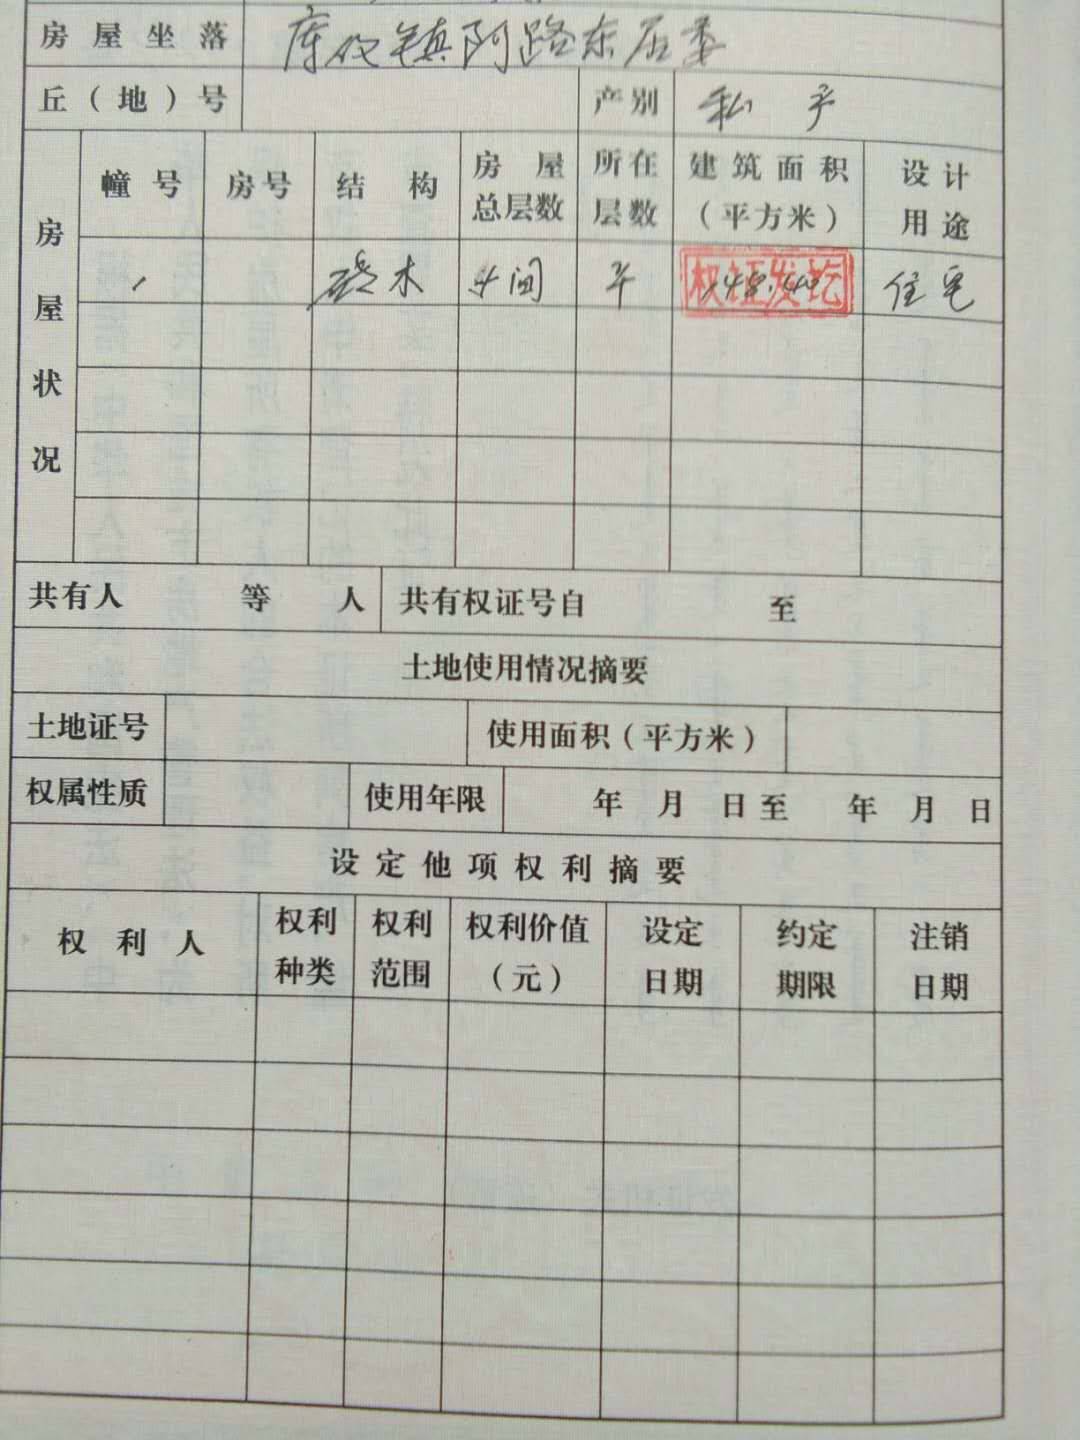 房屋坐落 库仪镇阿路东居委
丘（地）号 产别 私产
房屋状况 幢号 房号 结构 房屋总层数 所在层数 建筑面积（平方米） 设计用途
1 砖木 4间 平 148.40 住宅
权证发讫
共有人 等 人 共有权证号自 至
土地使用情况摘要
土地证号 使用面积（平方米）
权属性质 使用年限 年 月 日至 年 月 日
设定他项权利摘要
权利人 权利种类 权利范围 权利价值（元） 设定日期 约定期限 注销日期